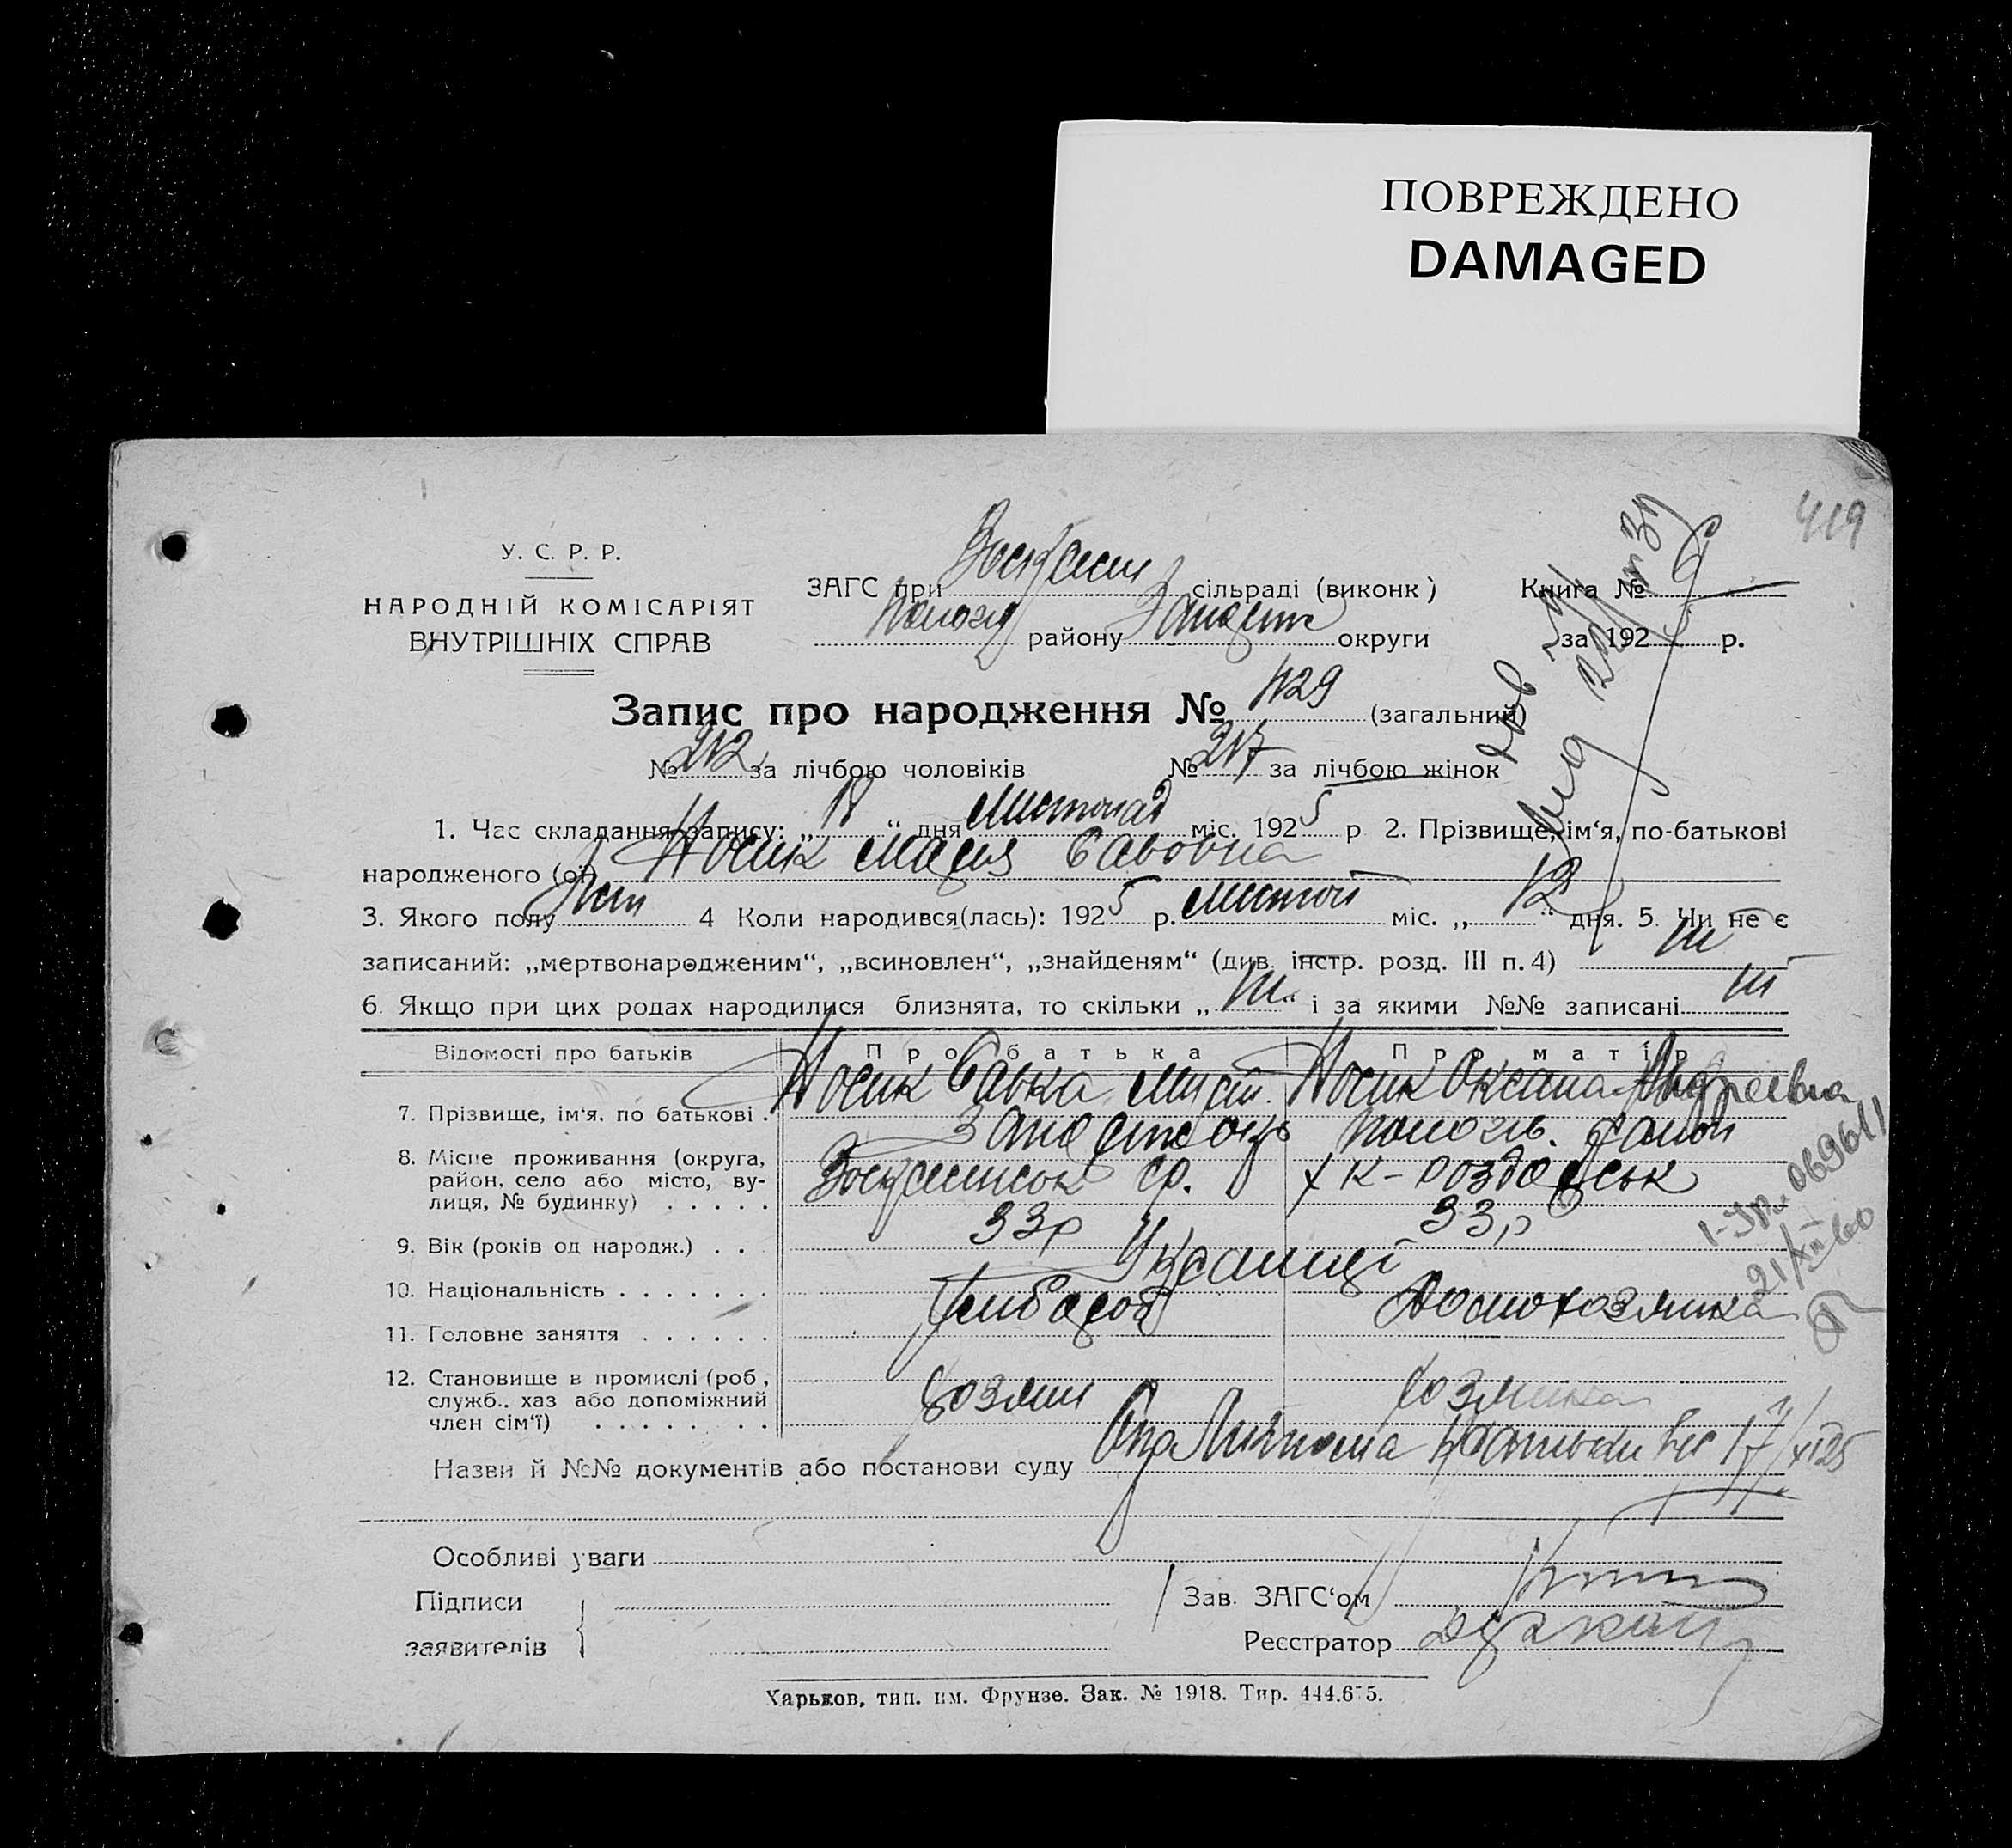 ПОВРЕЖДЕНО
DAMAGED
419
У. С. Р. Р.
НАРОДНІЙ КОМІСАРІЯТ
ВНУТРІШНІХ СПРАВ
ЗАГС при сільраді (виконк)
району округи
Книга №
за 192 р.
Запис про народження № 429 (загальний)
№ 212 за лічбою чоловіків № 217 за лічбою жінок
1. Час складання запису: „18“ дня Листопад міс. 1925 р 2. Прізвище, ім‘я, по-батькові
народженого (ої) Носик Мария Савовна
3. Якого полу 4 Коли народився(лась): 1925 р. Листоп міс. „12“ дня. 5. Чи не є
записаний: „мертвонародженим“, „всиновлен“, „знайденям“ (див. інстр. розд. III п. 4) ні
6. Якщо при цих родах народилися близнята, то скільки „ні“ і за якими №№ записані ні
Відомості про батьків Про батька Про матір
7. Прізвище, ім‘я. по батькові . Носик Савка Носик Оксана Андреевна
8. Місце проживання (округа, район, село або місто, вулиця, № будинку) . . . . . Запоріж окр пологів. район
ср. хк-роздорськ
9. Вік (років од народж.) . . 33р 33р
10. Національність . . . . . . . Українці
11. Головне заняття . . . . . . Хлибороб Домохозяйка
12. Становище в промислі (роб, служб.. хаз або допоміжний член сім‘ї) . . . . . . . . хозяин хозяйка
Назви й №№ документів або постанови суду 17/XI 25
Особливі уваги
Підписи
заявителів
Зав. ЗАГС‘ом
Реєстратор
1-ЯР. 069611
21/XII 60
Харьков, тип. им. Фрунзе. Зак. № 1918. Тир. 444.675.